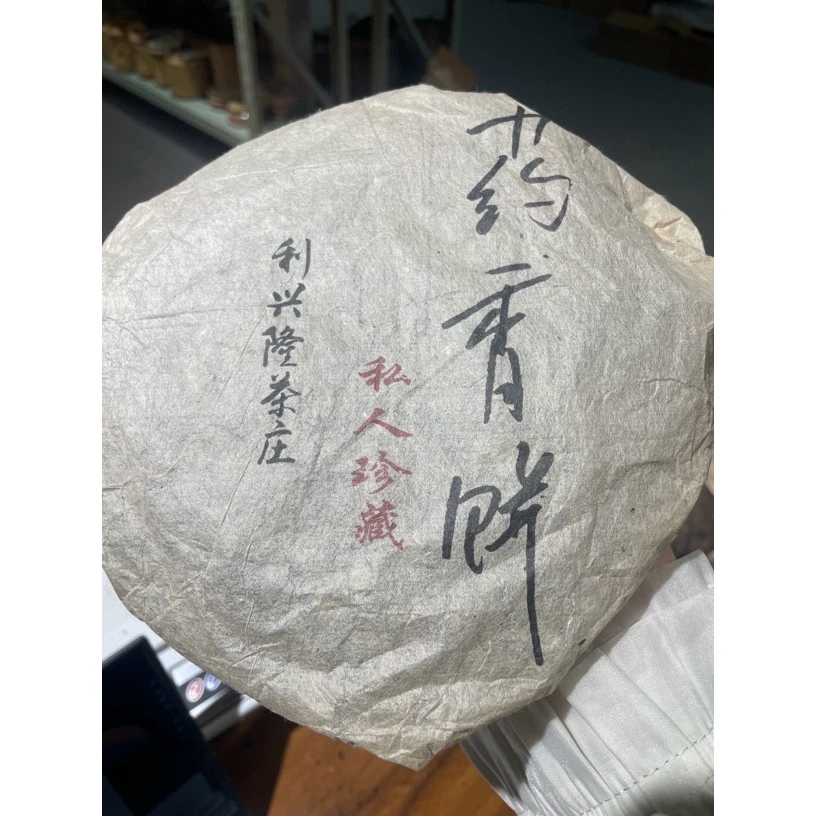 药香饼
私人珍藏
利兴隆茶庄